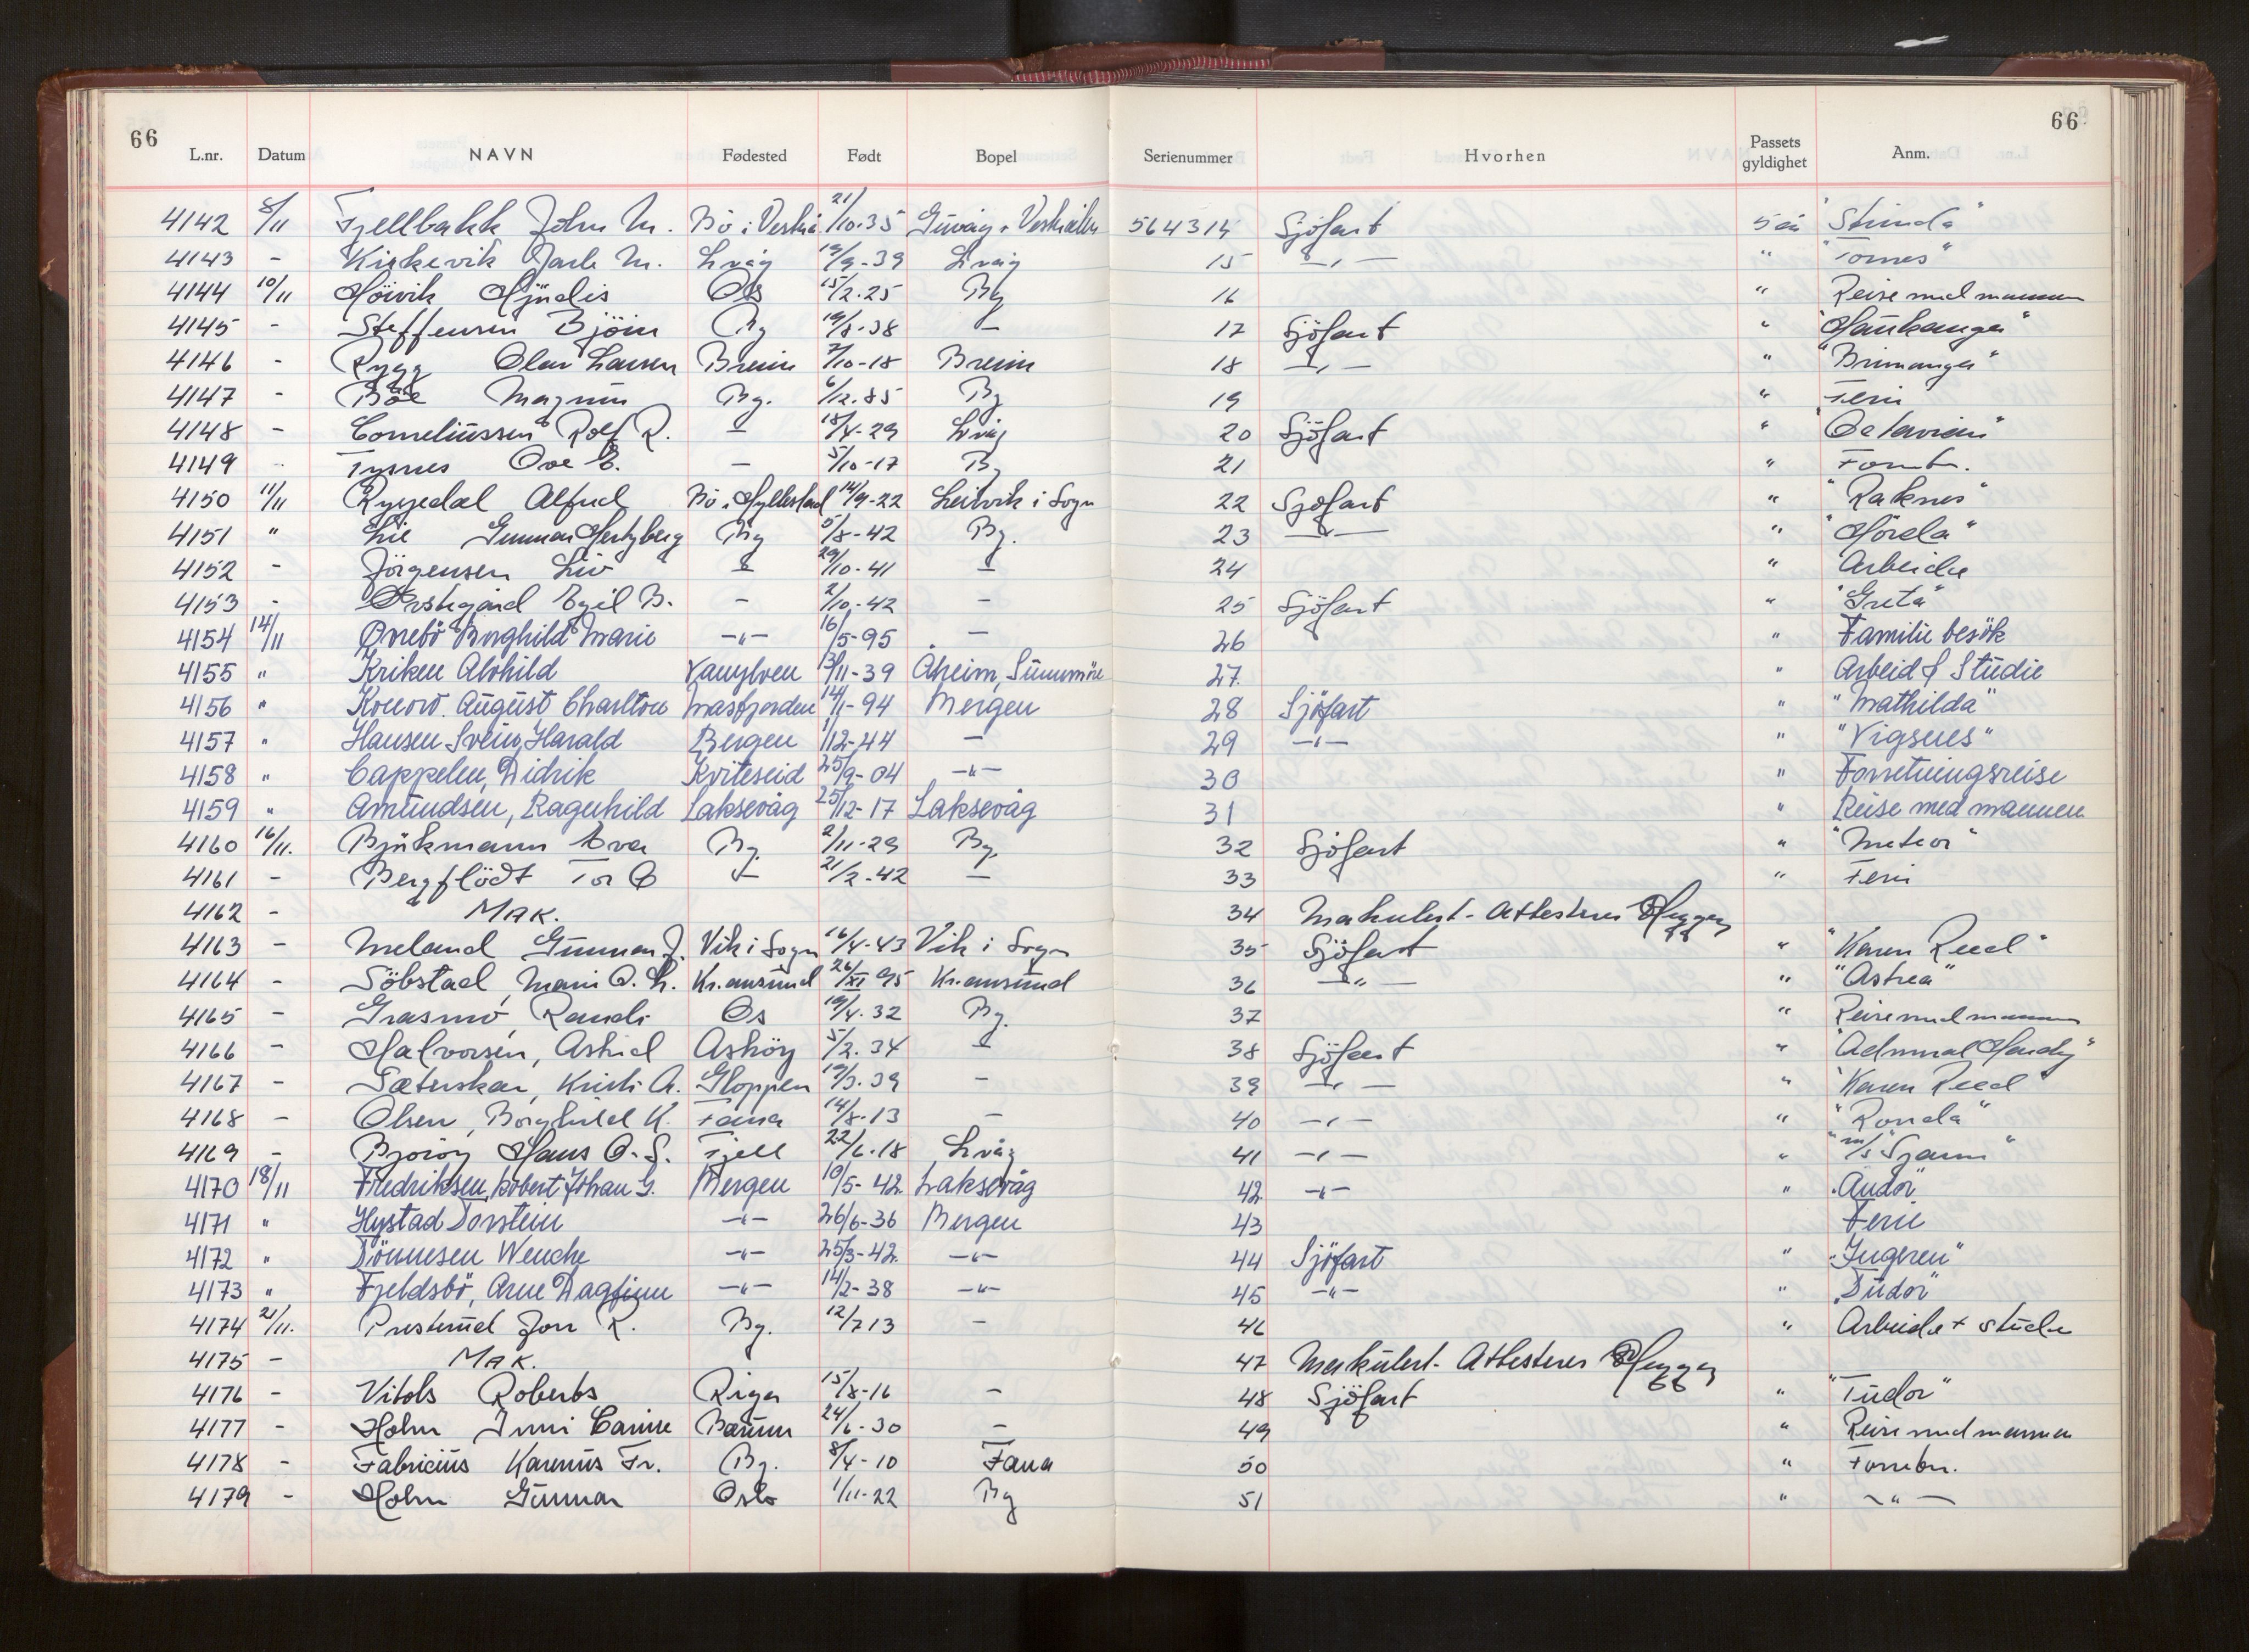 66
66
L.nr. Datum NAVN Fødested Født Bopel Serienummer Hvorhen Passets gyldighet Anm.
4142 8/11 Fjellbakk John M. Bö i Vesterå 21/10-35 Guvåg i Vesterålen 564314 Sjöfart 5 år "Stunda"
4143 - Kirkevik Jarle M. Lvåg 19/9-39 Lvåg 15 -"- " "Tornes"
4144 10/11 Höivik Hjördis Os 15/2-25 Bg 16 " Reise med mannen
4145 - Steffensen Björn Bg 19/8-38 - 17 Sjöfart " "Haukanger"
4146 - Rygg Olav Larsen Breim 7/10-18 Breim 18 -"- " "Brimanger"
4147 - Böe Magnus Bg. 6/12-85 Bg 19 " Ferie
4148 - Corneliussen Rolf R. - 18/4-29 Lvåg 20 Sjöfart " "Octavian"
4149 - Tysnes Ove E. - 5/10-17 Bg 21 " Forretn.
4150 11/11 Rygedal Alfred Bö i Hyllestad 14/9-22 Leirvik i Sogn 22 Sjöfart " "Raknes"
4151 " Lie Gunnar Hertzberg Bg 5/8-42 Bg. 23 -"- " "Hörda"
4152 - Jörgensen Liv - 29/10-41 - 24 " Arbeide
4153 - Östegård Egil B. - 2/10-42 - 25 Sjöfart " "Greta"
4154 14/11 Orrebö Borghild Marie -"- 16/5-95 - 26 " Familie besök
4155 " Kriken Alvhild Vanylven 13/11-39 Åheim, Sunnmöre 27 " Arbeid & Studie
4156 " Konow. August Charlton Masfjorden 14/1-94 Bergen 28 Sjöfart " "Mathilda"
4157 " Hansen Svein Harald Bergen 1/12-44 - 29 -"- " "Vigsnes"
4158 " Cappelen, Didrik Kviteseid 25/9-04 -"- 30 " Forretningsreise
4159 " Amundsen, Ragnhild Laksevåg 25/12-17 Laksevåg 31 " Reise med mannen
4160 16/11. Björkmann Eva Bg. 2/11-29 Bg. 32 Sjöfart " "Meteor"
4161 - Bergflödt Tor O - 21/2-42 - 33 " Ferie
4162 - MAK. 34 Makulert - Attesteres
4163 - Meland Gunnar J. Vik i Sogn 16/4-43 Vik i Sogn 35 Sjöfart " "Karen Reed"
4164 - Söbstad, Marie O. L. Kr.ansund 26/XI 95 Kr.ansund 36 -"- " "Astrea"
4165 - Grasmo, Randi Os 19/4-32 Bg. 37 " Reise med mannen
4166 - Halvorsen, Astrid Asköy 5/2-34 - 38 Sjöfart " "Admiral Hardy"
4167 - Sæterskar, Kirsti A. Gloppen 19/3-39 - 39 -"- " "Karen Reed"
4168 - Olsen, Borghild K. Fana 14/8-13 - 40 -"- " "Ronda"
4169 - Bjoröy Hans O. S. Fjell 22/6-18 Lvåg 41 -"- "
4170 18/11 Fredriksen, Robert Johan G. Bergen 10/5-42 Laksevåg 42 -"- " "Audör"
4171 " Hystad Torstein -"- 26/6-36 Bergen 43 Ferie
4172 " Tönnesen Wenche -"- 25/3-42 -"- 44 Sjöfart " "Ingeren"
4173 " Fjeldsbö, Arne Dagfinn -"- 14/2-38 -"- 45 -"- " "Tudor"
4174 21/11. Presterud Jon R. Bg. 12/7 13 - 46 " Arbeide + studie
4175 - MAK. 47 Makulert - Attesteres
4176 - Vitols Roberts Riga 15/8-16 - 48 Sjöfart " "Tudor"
4177 - Holm Inni Carine Bærum 24/6-30 - 49 " Reise med mannen
4178 - Fabricius Karenus Fr. Bg. 8/4-10 Fana 50 " Forretn.
4179 - Holm Gunnar Oslo 1/11-22 Bg 51 " -"-